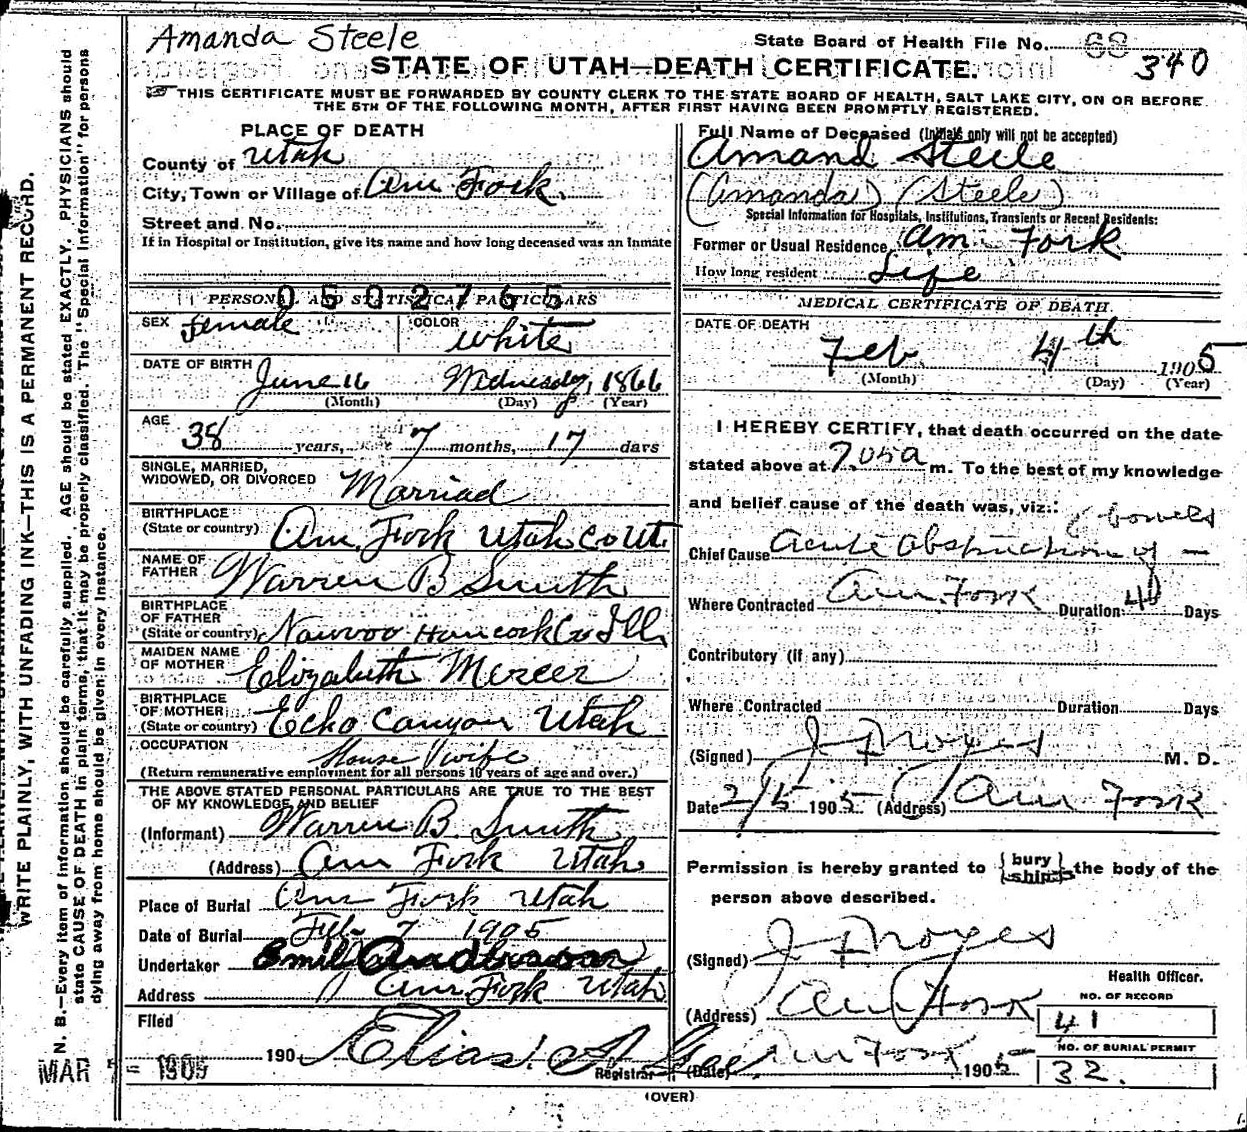 Amanda Steele
State Board of Health File No. 68
340
STATE OF UTAH—DEATH CERTIFICATE.
THIS CERTIFICATE MUST BE FORWARDED BY COUNTY CLERK TO THE STATE BOARD OF HEALTH, SALT LAKE CITY, ON OR BEFORE
THE 5TH OF THE FOLLOWING MONTH, AFTER FIRST HAVING BEEN PROMPTLY REGISTERED.
WRITE PLAINLY, WITH UNFADING INK—THIS IS A PERMANENT RECORD.
N. B.—Every item of information should be carefully supplied. AGE should be stated EXACTLY. PHYSICIANS should
state CAUSE OF DEATH in plain terms, that it may be properly classified. The "Special Information" for persons
dying away from home should be given in every instance.
PLACE OF DEATH
County of Utah
City, Town or Village of Am Fork.
Street and No.
If in Hospital or Institution, give its name and how long deceased was an Inmate
PERSONAL AND STATISTICAL PARTICULARS
0502765
SEX female
COLOR white
DATE OF BIRTH June 16 Wednesday, 1866
(Month) (Day) (Year)
AGE 38 years, 7 months, 17 days
SINGLE, MARRIED,
WIDOWED, OR DIVORCED Marriad
BIRTHPLACE
(State or country) Am. Fork Utah Co Ut.
NAME OF
FATHER Warren B Smith
BIRTHPLACE
OF FATHER
(State or country) Nauvoo Hancock Co Ill
MAIDEN NAME
OF MOTHER Elizabeth Mercer
BIRTHPLACE
OF MOTHER
(State or country) Echo Canyon Utah
OCCUPATION House wife
(Return remunerative employment for all persons 10 years of age and over.)
THE ABOVE STATED PERSONAL PARTICULARS ARE TRUE TO THE BEST
OF MY KNOWLEDGE AND BELIEF
(Informant) Warren B. Smith
(Address) Am Fork Utah
Place of Burial Am Fork Utah
Date of Burial Feb 7 1905
Undertaker Emil
Address Am Fork Utah
Filed
190 Elias A Gee
Registrar
MAR 1905
Full Name of Deceased (Initials only will not be accepted)
Amand Steele
(Amanda) (Steele)
Special Information for Hospitals, Institutions, Transients or Recent Residents:
Former or Usual Residence Am Fork
How long resident Life
MEDICAL CERTIFICATE OF DEATH
DATE OF DEATH
Feb 4th 1905
(Month) (Day) (Year)
I HEREBY CERTIFY, that death occurred on the date
stated above at 7.05 a m. To the best of my knowledge
and belief cause of the death was, viz.:
Chief Cause Acute Obstruction of bowels
Where Contracted Am. Fork Duration Days
Contributory (if any)
Where Contracted Duration Days
(Signed) J F Noyes M. D.
Date 2/5 1905 (Address) Am Fork
Permission is hereby granted to {bury ship} the body of the
person above described.
(Signed) J F Noyes
Health Officer.
(Address) Am Fork
NO. OF RECORD
41
(Date) Am Fork 1905
NO. OF BURIAL PERMIT
32.
(OVER)